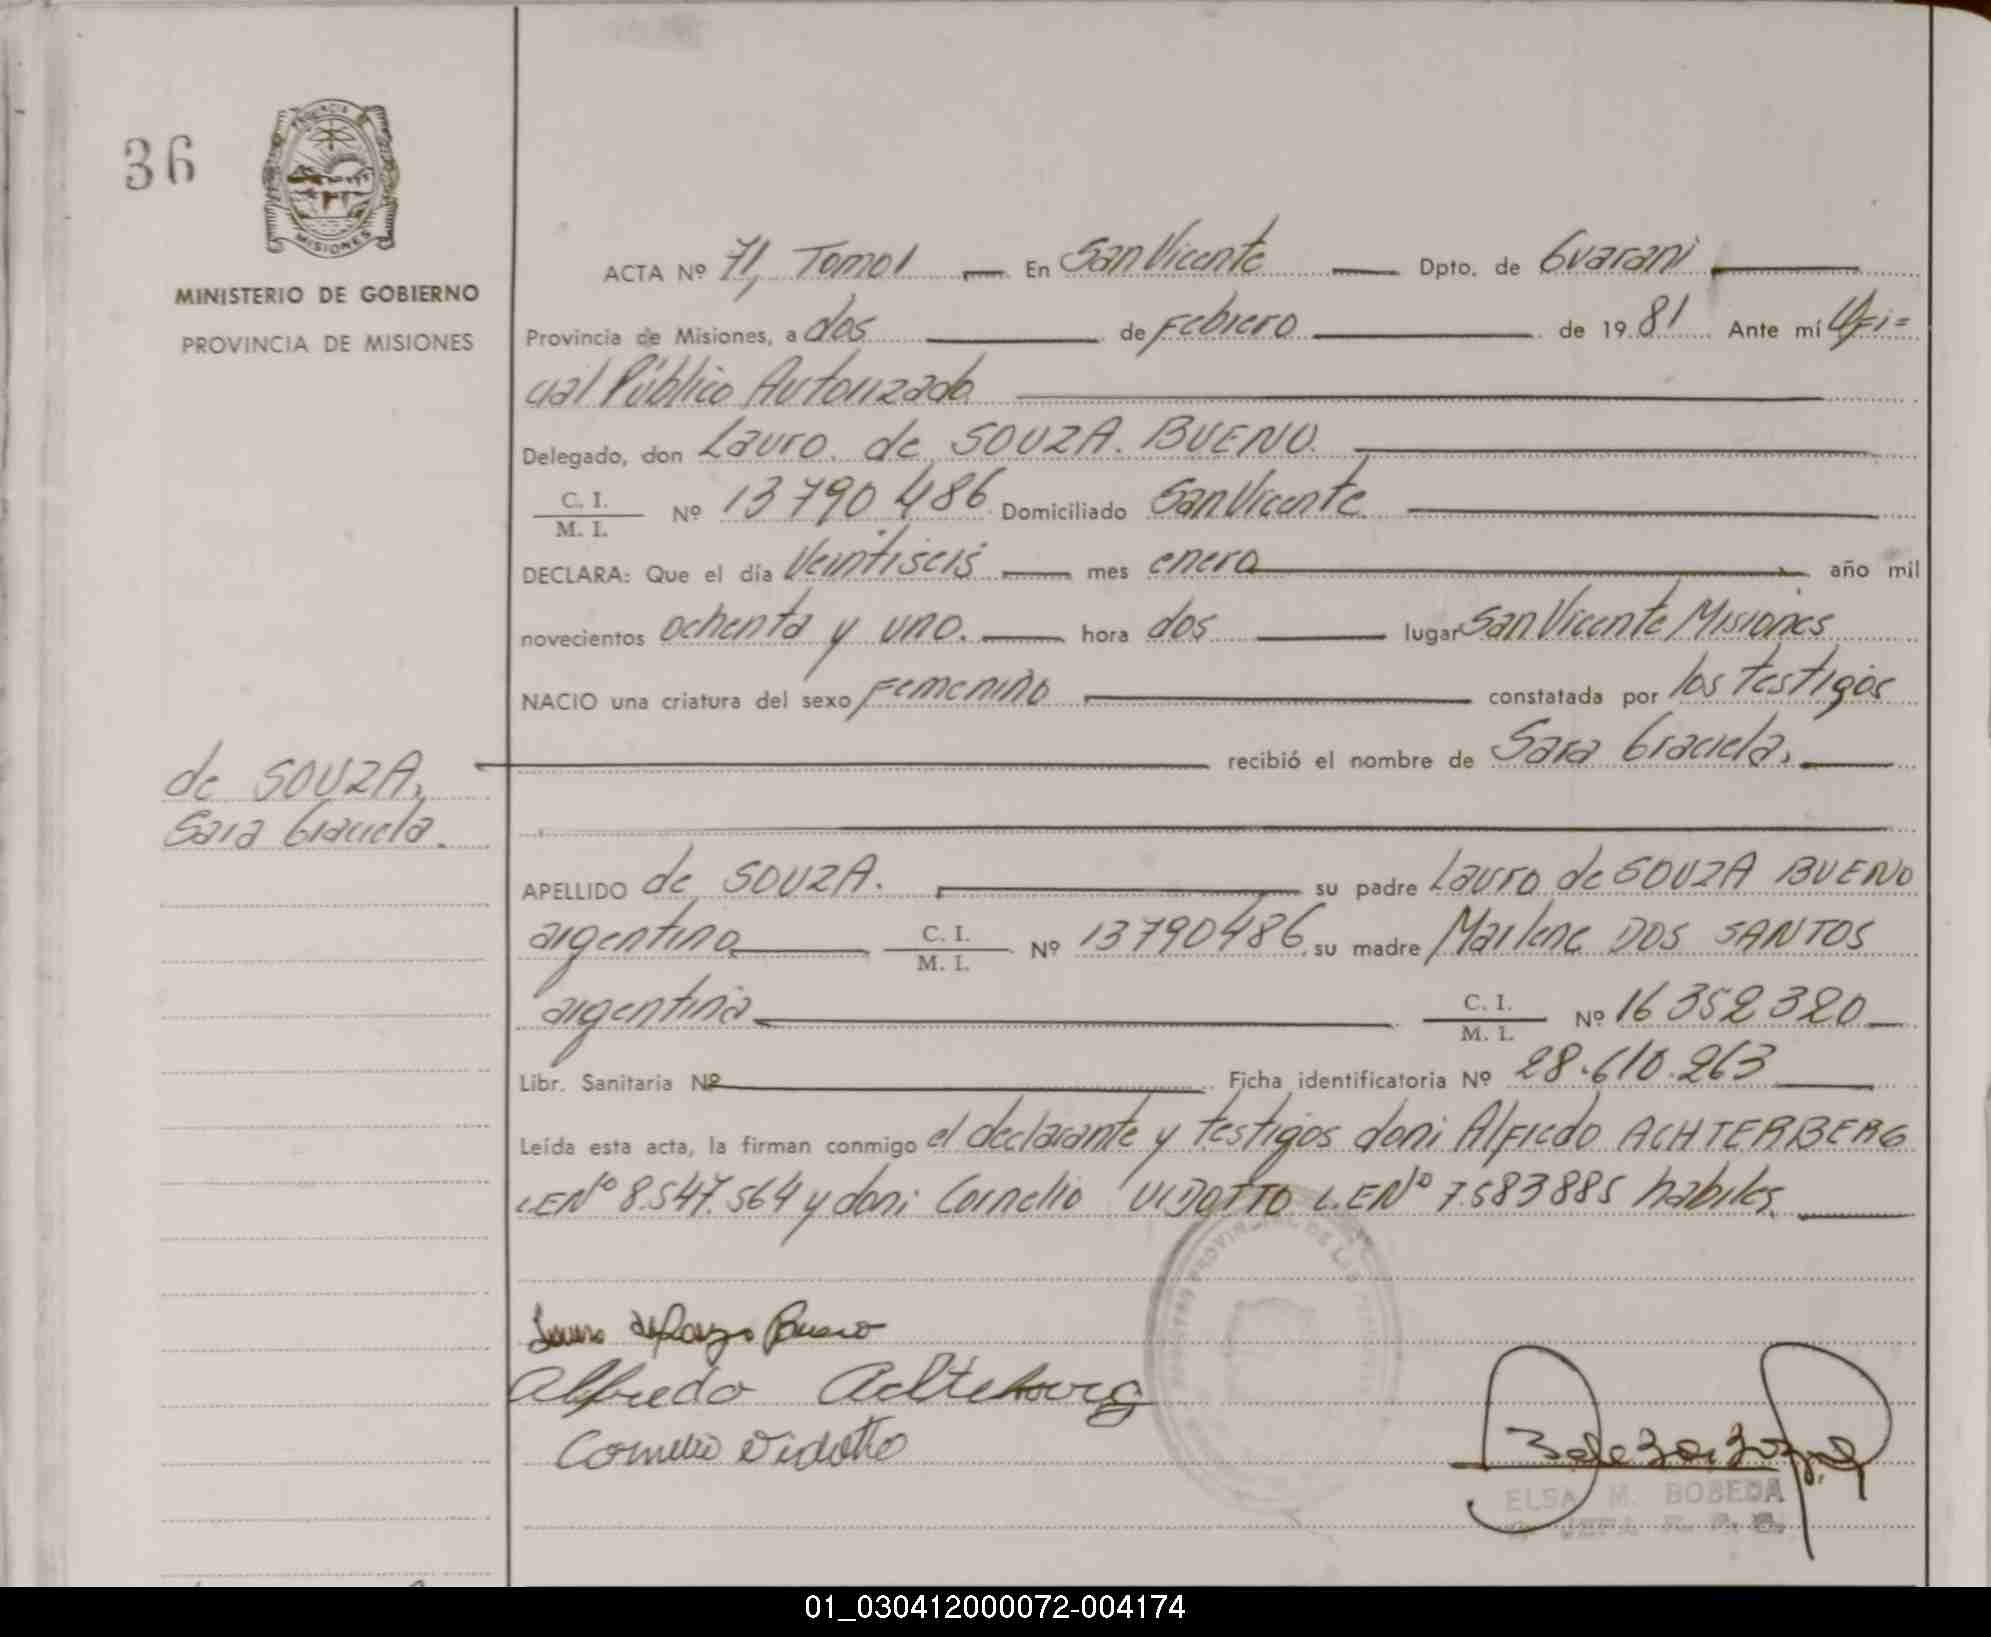 36
PROVINCIA
MISIONES
MINISTERIO DE GOBIERNO
PROVINCIA DE MISIONES
ACTA Nº 71, Tomo 1 En San Vicente Dpto. de Guarani
Provincia de Misiones, a dos de Febrero de 19 81 Ante mí Ofi=
cial Público Autorizado
Delegado, don Lauro de SOUZA. BUENO.
C. I.
M. I. Nº 13790486 Domiciliado San Vicente
DECLARA: Que el día Veintiseis mes enero año mil
novecientos ochenta y uno. hora dos lugar San Vicente Misiones
NACIO una criatura del sexo Femenino constatada por los testigos
recibió el nombre de Sara Graciela,
de SOUZA,
Sara Graciela.
APELLIDO de SOUZA. su padre Lauro de SOUZA BUENO
argentino C. I.
M. I. Nº 13790486 su madre Marlene DOS SANTOS
argentina C. I.
M. I. Nº 16352320
Libr. Sanitaria Nº Ficha identificatoria Nº 28.610.263
Leída esta acta, la firman conmigo el declarante y testigos don: Alfredo ACHTERBERG
L.E Nº 8.547.564 y don: Cornelio VIDOTTO L.E Nº 7.583885 habiles,
Lauro de Souza Bueno
Alfredo Achterberg
Cornelio Vidotto
ELSA M. BOBEDA
JEFA
01_030412000072-004174